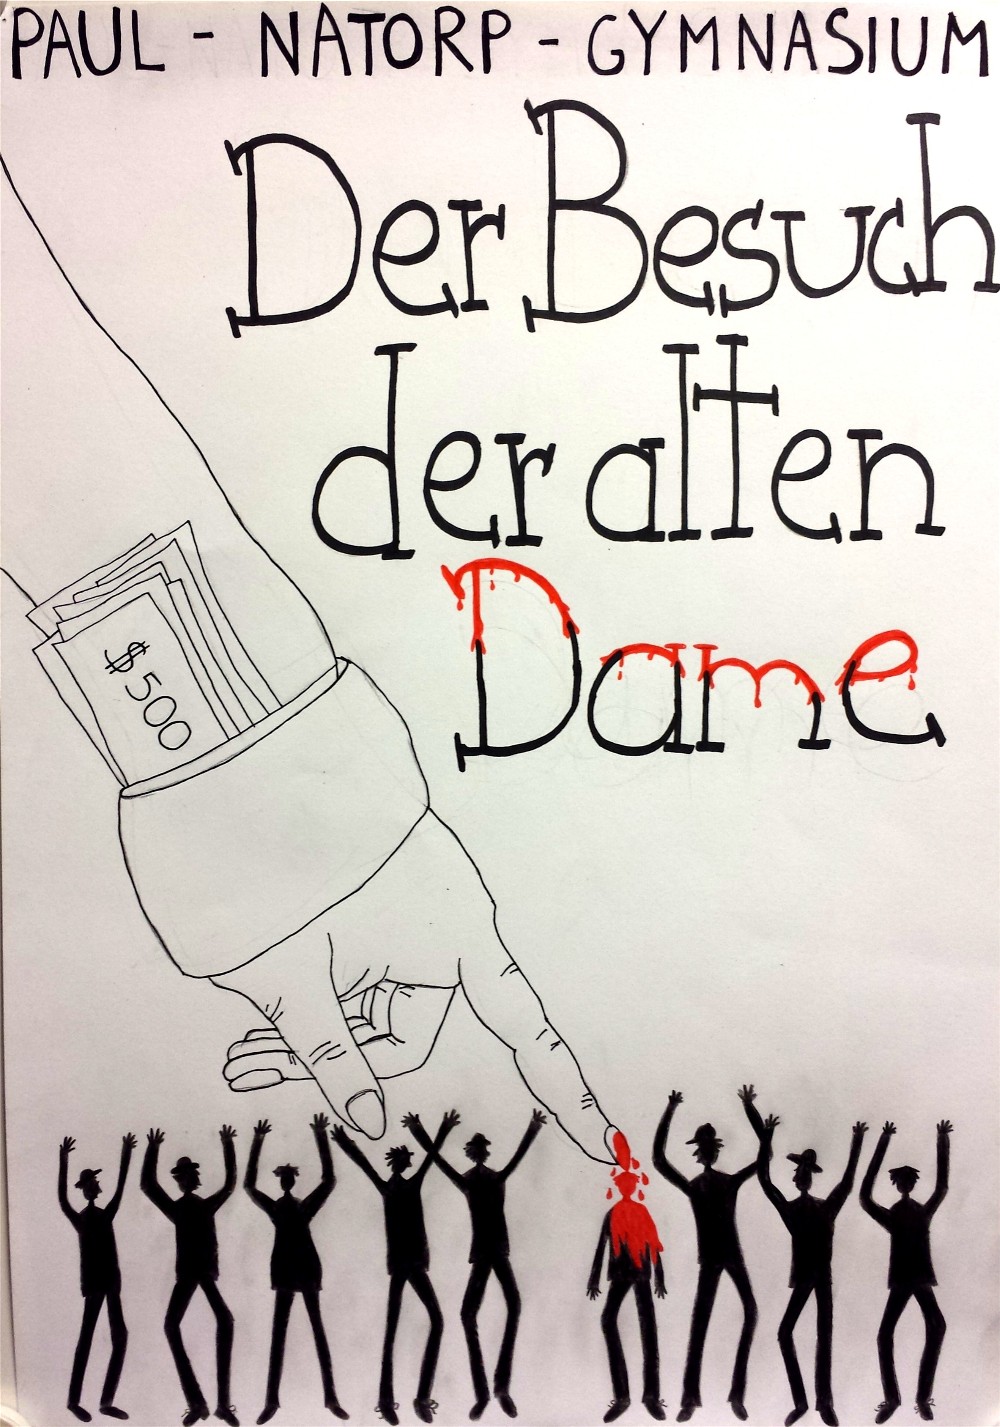 PAUL - NATORP - GYMNASIUM
Der Besuch
der alten
Dame
$500